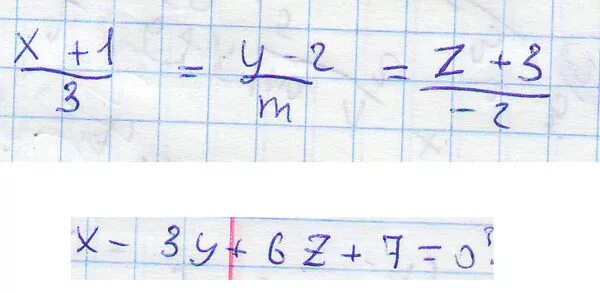 x + 1 / 3 = y - 2 / m = z + 3 / -2
x - 3y + 6z + 7 = 0?